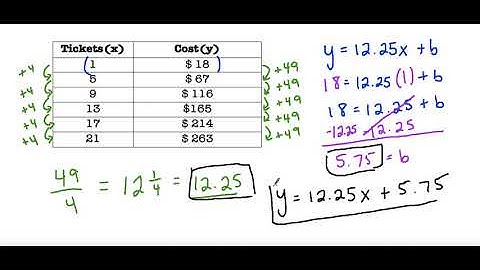 Tickets(x) Cost(y)
1 $ 18
5 $ 67
9 $ 116
13 $165
17 $ 214
21 $ 263
+4
+4
+4
+4
+4
+49
+49
+49
+49
+49
49/4 = 12 1/4 = 12.25
y = 12.25x + b
18 = 12.25 (1) + b
18 = 12.25 + b
-12.25 -12.25
5.75 = b
y = 12.25x + 5.75